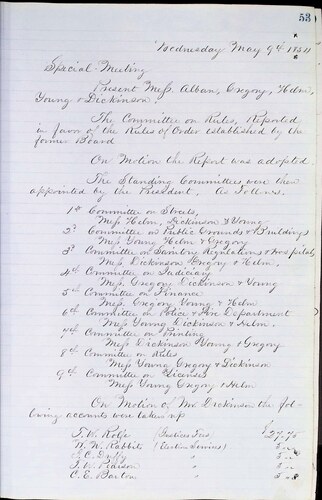 53
Wednesday May 9th
Special Meeting
Present Mess. Alban, Gregory, Helm,
Young & Dickinson.
The Committee on Rules, Reported
in favor of the Rules of Order established by the
former Board
On Motion the Report was adopted.
The Standing Committees were then
appointed by the President, As Follows.
1st Committee on Streets,
Mess Helm, Dickinson & Young
2d Committee on Public Grounds & Buildings
Mess Young Helm & Gregory
3d Committee on Sanitary Regulations & Hospitals
Mess Dickinson Gregory & Helm.
4th Committee on Judiciary
Mess. Gregory Dickinson & Young
5th Committee on Finance
Mess Gregory Young & Helm
6th Committee on Police & Fire Department
Mess Young Dickinson & Helm.
7th Committee on Printing
Mess Dickinson Young & Gregory
8th Committee on Rules
Mess Young Gregory & Dickinson
9th Committee on Licenses
Mess Young Gregory & Helm
On Motion of Mr Dickinson the fol-
lowing accounts were taken up
T. W. Rolfe (Justices Fees) $27.75
W. W. Rabbits (Election Services)
P. C. "
T. W. Pearson "
C. E. Barton "